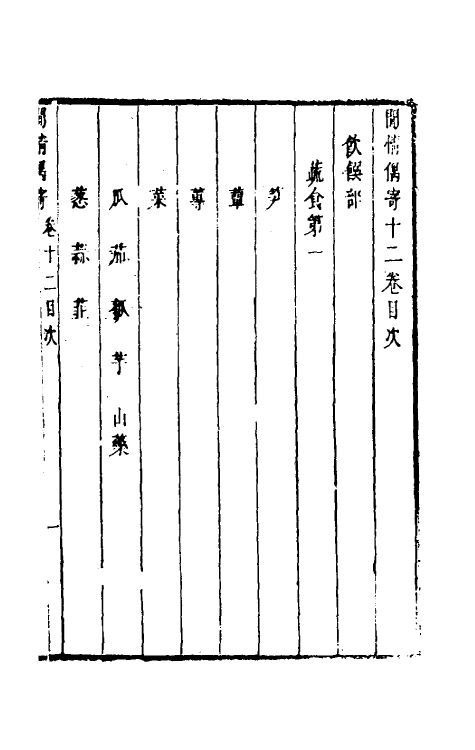 閒情偶寄十二卷目次
飲饌部
蔬食第一
笋
蕈
蓴
菜
瓜茄瓠芋山藥
葱蒜韮
閒情偶寄 卷十二目次 一